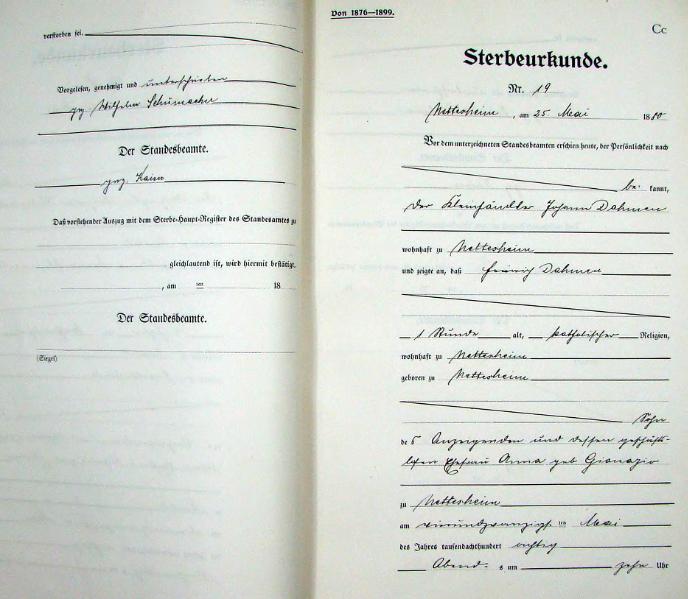 verstorben sei.
Vorgelesen, genehmigt und unterschrieben
gez Wilhelm Schumacher
Der Standesbeamte.
gez.
Daß vorstehender Auszug mit dem Sterbe-Haupt-Register des Standesamtes zu
gleichlautend ist, wird hiermit bestätigt.
, am ten 18
Der Standesbeamte.
(Siegel)
Von 1876—1899.
Cc
Sterbeurkunde.
Nr. 19
Nettesheim, am 25 Mai 1880
Vor dem unterzeichneten Standesbeamten erschien heute, der Persönlichkeit nach
be- kannt,
der Kleinhändler Johann Dahmen
wohnhaft zu Nettesheim
und zeigte an, daß Heinrich Dahmen
1 Stunde alt, katholischer Religion,
wohnhaft zu Nettesheim
geboren zu Nettesheim
Sohn
des Anzeigenden und dessen geschäfts-
Ehefrau Anna geb
zu Nettesheim
am vierundzwanzigst ten Mai
des Jahres tausendachthundert achtzig
Abends um zehn Uhr